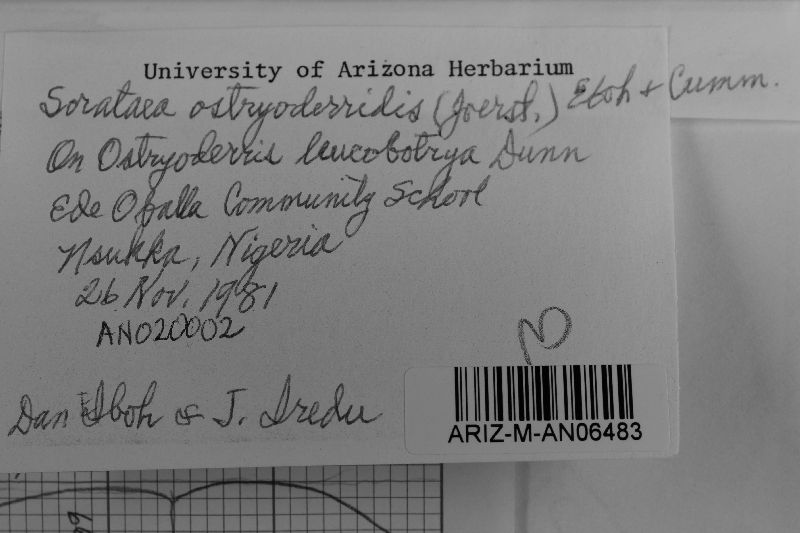 University of Arizona Herbarium
Sorataea ostryoderridis (Joerst.) Eboh & Cumm.
On Ostryoderris leucobotrya Dunn
Ede Oballa Community School
Nsukka, Nigeria
26 Nov. 1981
AN020002
Dan Eboh & J. Iredu
ARIZ-M-AN06483